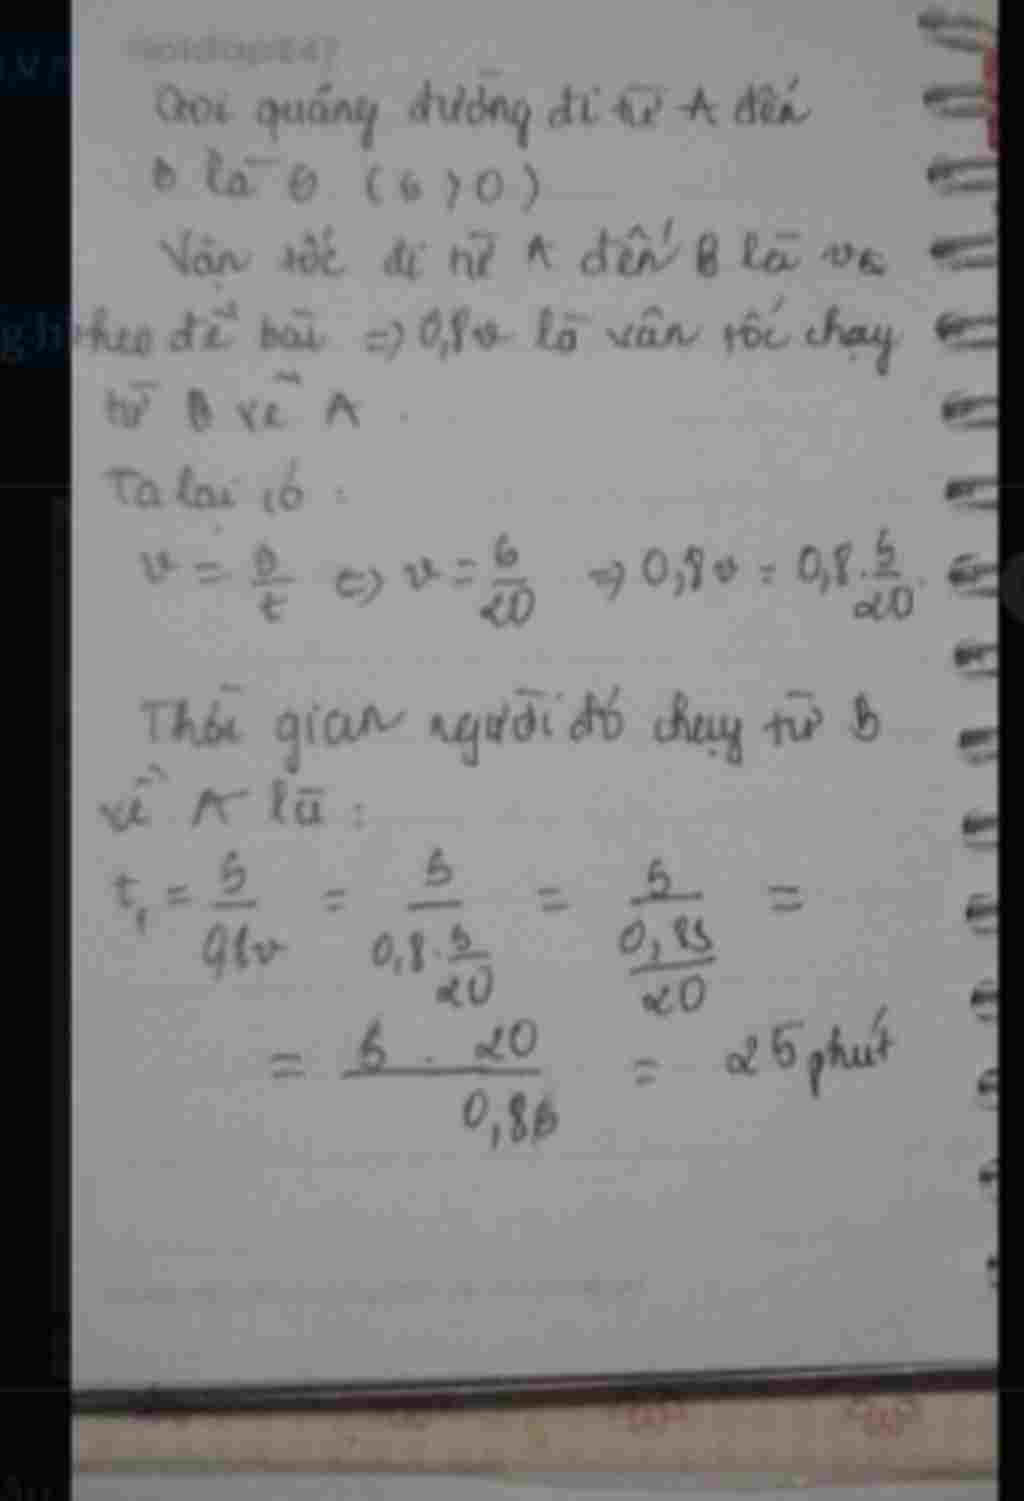 Gọi quãng đường đi từ A đến
B là s (s > 0)
Vận tốc đi từ A đến B là v
theo đề bài => 0,8v là vân tốc chạy
từ B về A.
Ta lại có :
v = s/t <=> v = s/20 => 0,8v = 0,8.s/20.
Thời gian người đó chạy từ B
về A là :
t₁ = s/0,8v = s/(0,8.s/20) = s/(0,8s/20) =
= s . 20/0,8s = 25 phút